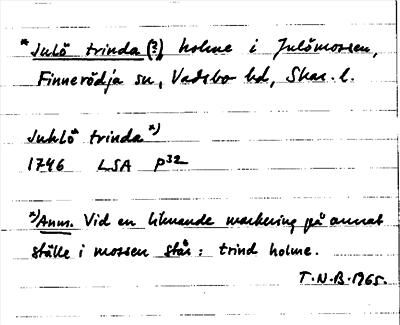 *Julö trinda (?), holme i Julömossen,
Finnerödja sn, Vadsbo hd, Skar. l.
Juhlö trinda *)
1746 LSA P32
*) Anm. Vid en liknande markering på annat
ställe i mossen står: trind holme.
T.N.B. 1965.